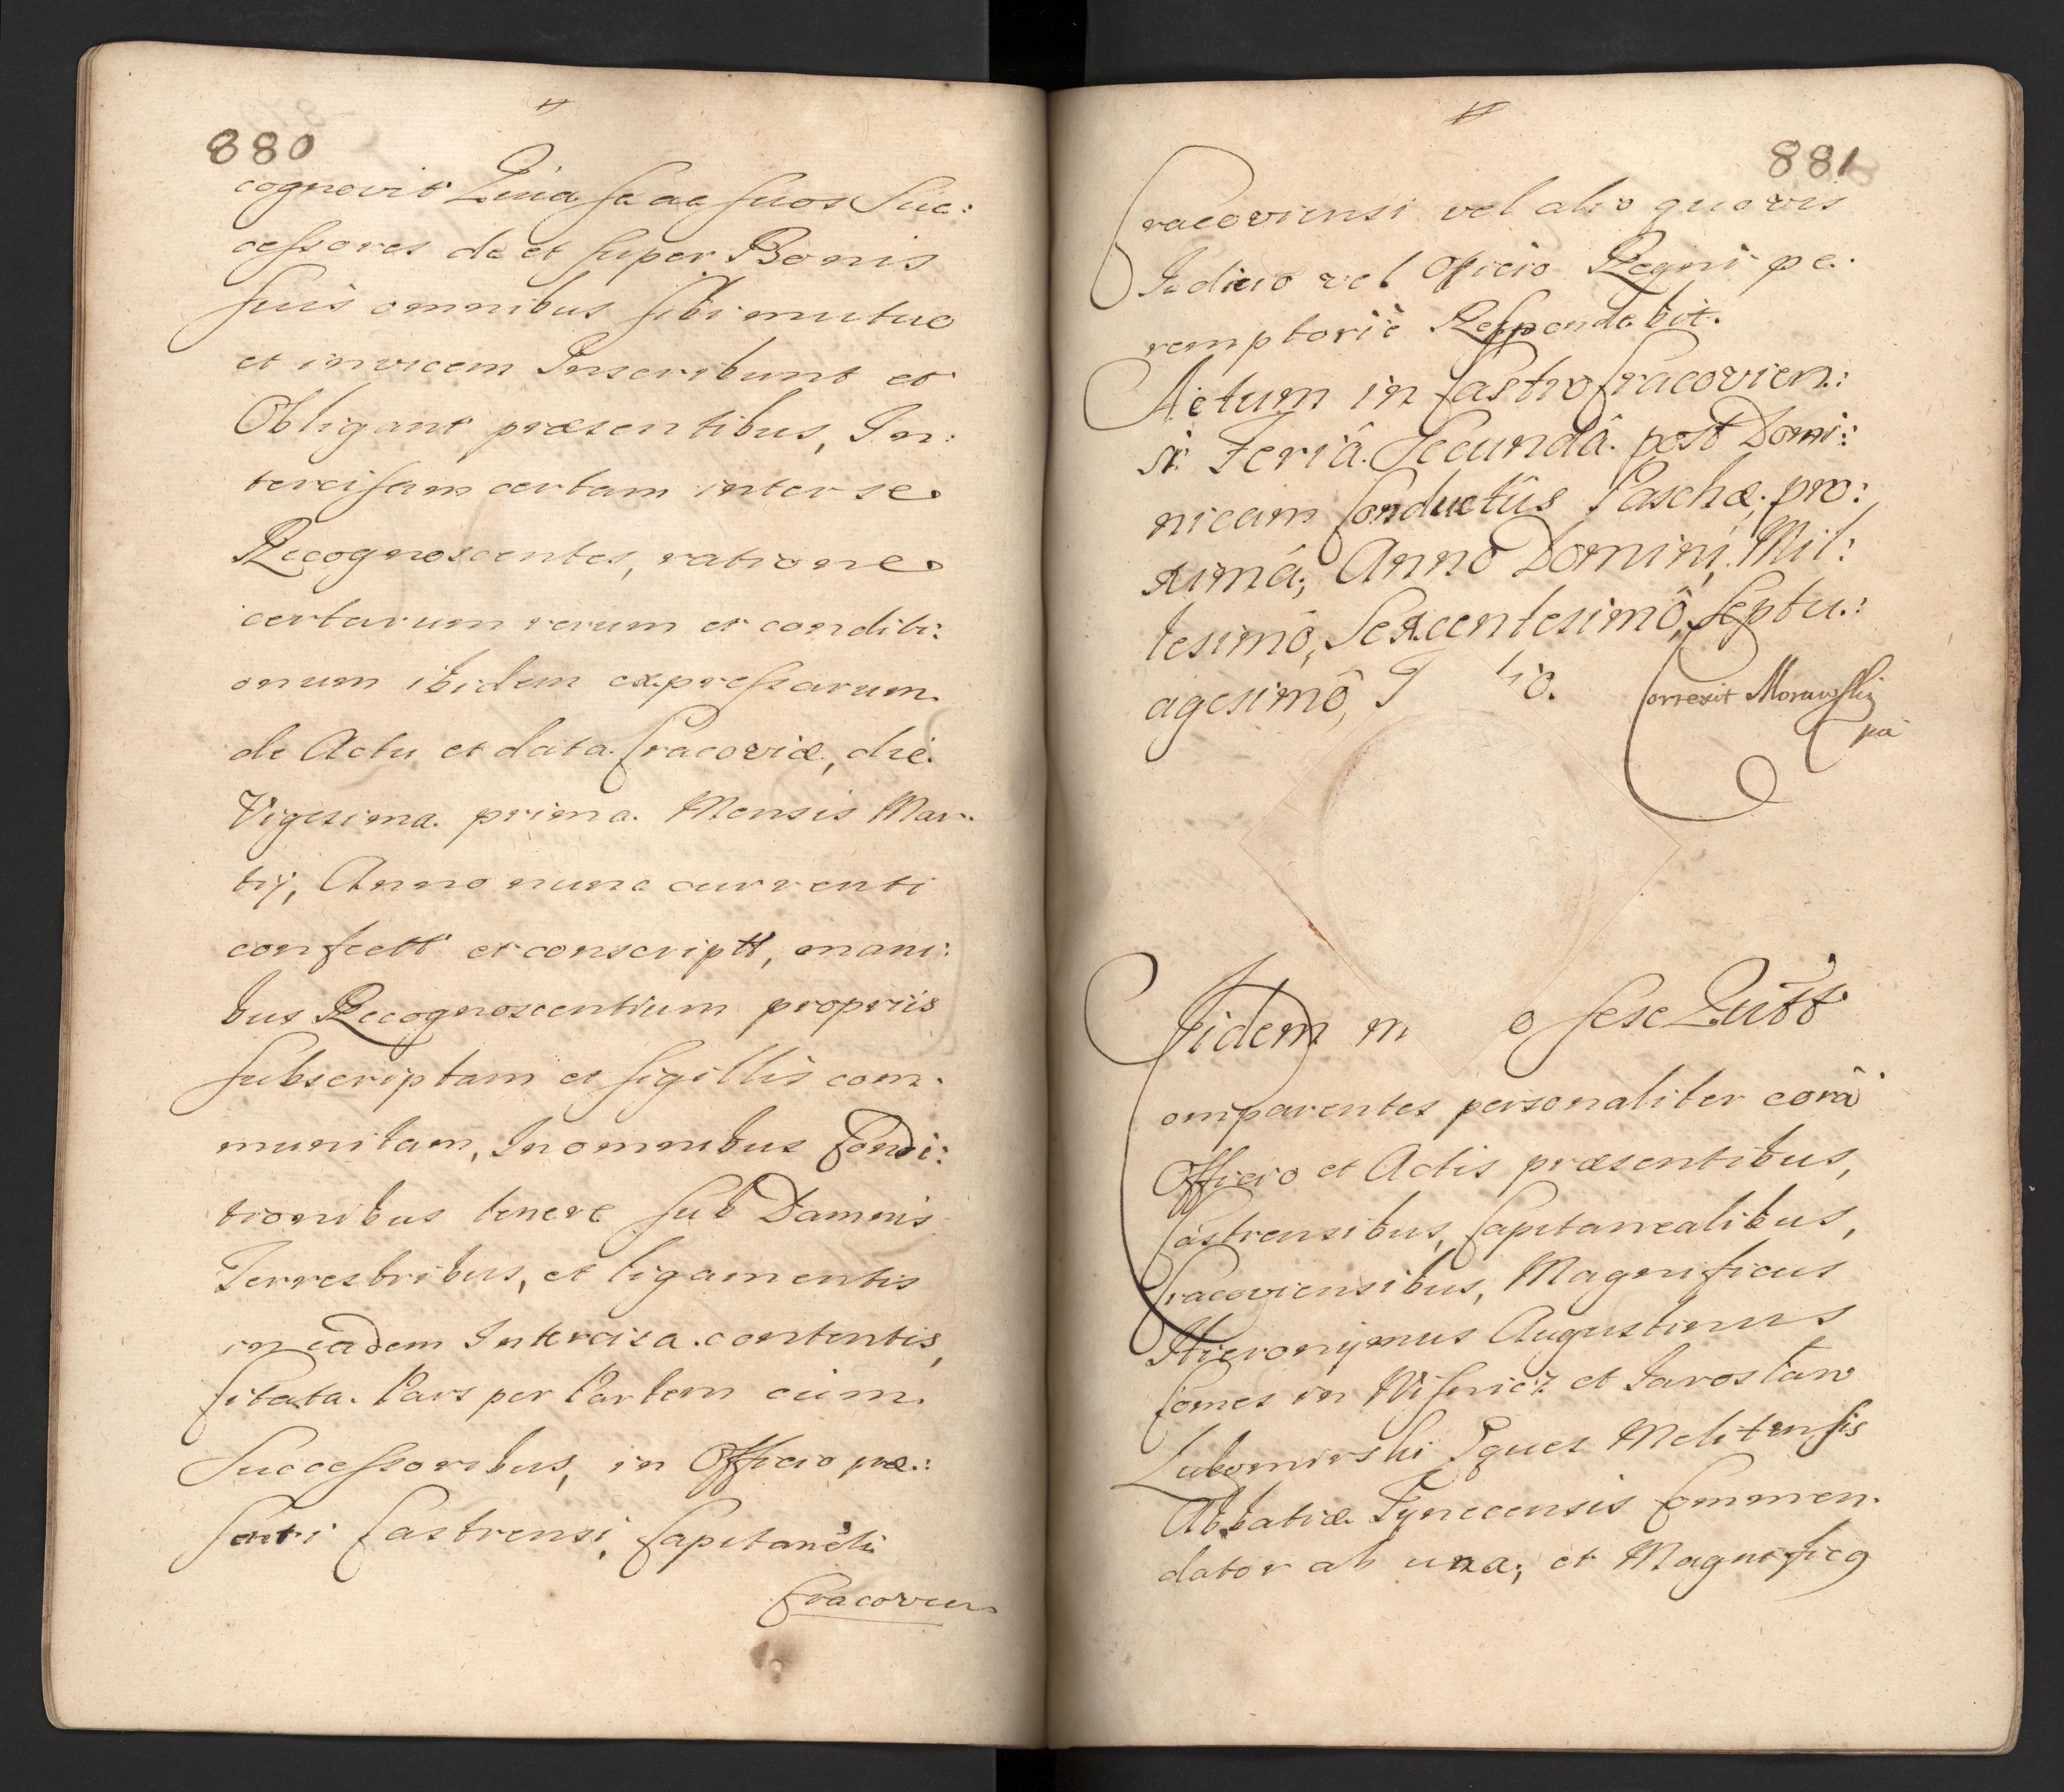 880
cognovit Quia se ac suos Suc:
cessores de et super Bonis
suis omnibus sibi mutuo
et invicem Inscribunt et
Obligant præsentibus, In:
tercisam certam inter se
Recognoscentes, ratione
certarum rerum et conditi:
onum ibidem expressarum
de Actu et data Cracoviæ, die
Vigesima prima Mensis Mar
tij, Anno nunc currenti
confectt et conscriptt, mani:
bus Recognoscentium propriis
subscriptam et sigillis com
munitam, In omnibus Condi:
tionibus tenere sub Damnis
Terrestribus, et ligamentis
in eadem Intercisa contentis,
citata Pars per Partem cum
Successoribus, in Officio præ:
senti Castrensi, Capitanèli
Cracovien
881
Cracoviensi vel alio quovis
Judicio vel Oficio Regni pe
remptoriè Respondebit.
Actum in Castro Cracovien:
si Feriâ Secundâ post Domi:
nicam Conductûs Paschæ, pro:
ximâ, Anno Domini, Mil:
lesimô, Sexcentesimô, Septu:
agesimô, T tiô.
Correxit Morawskij
pa
Jidem in o sese Quitt
omparentes personaliter corâ
Officio et Actis præsentibus,
Castrensibus, Capitanealibus,
Cracoviensibus, Magnificus
Hieronymus Augustinus
Comes in Wisnicz et Jaroslaw
Lubomirski Eques Melitensis
Abbatiæ Tynecensis Commen
dator ab una, et Magnificq